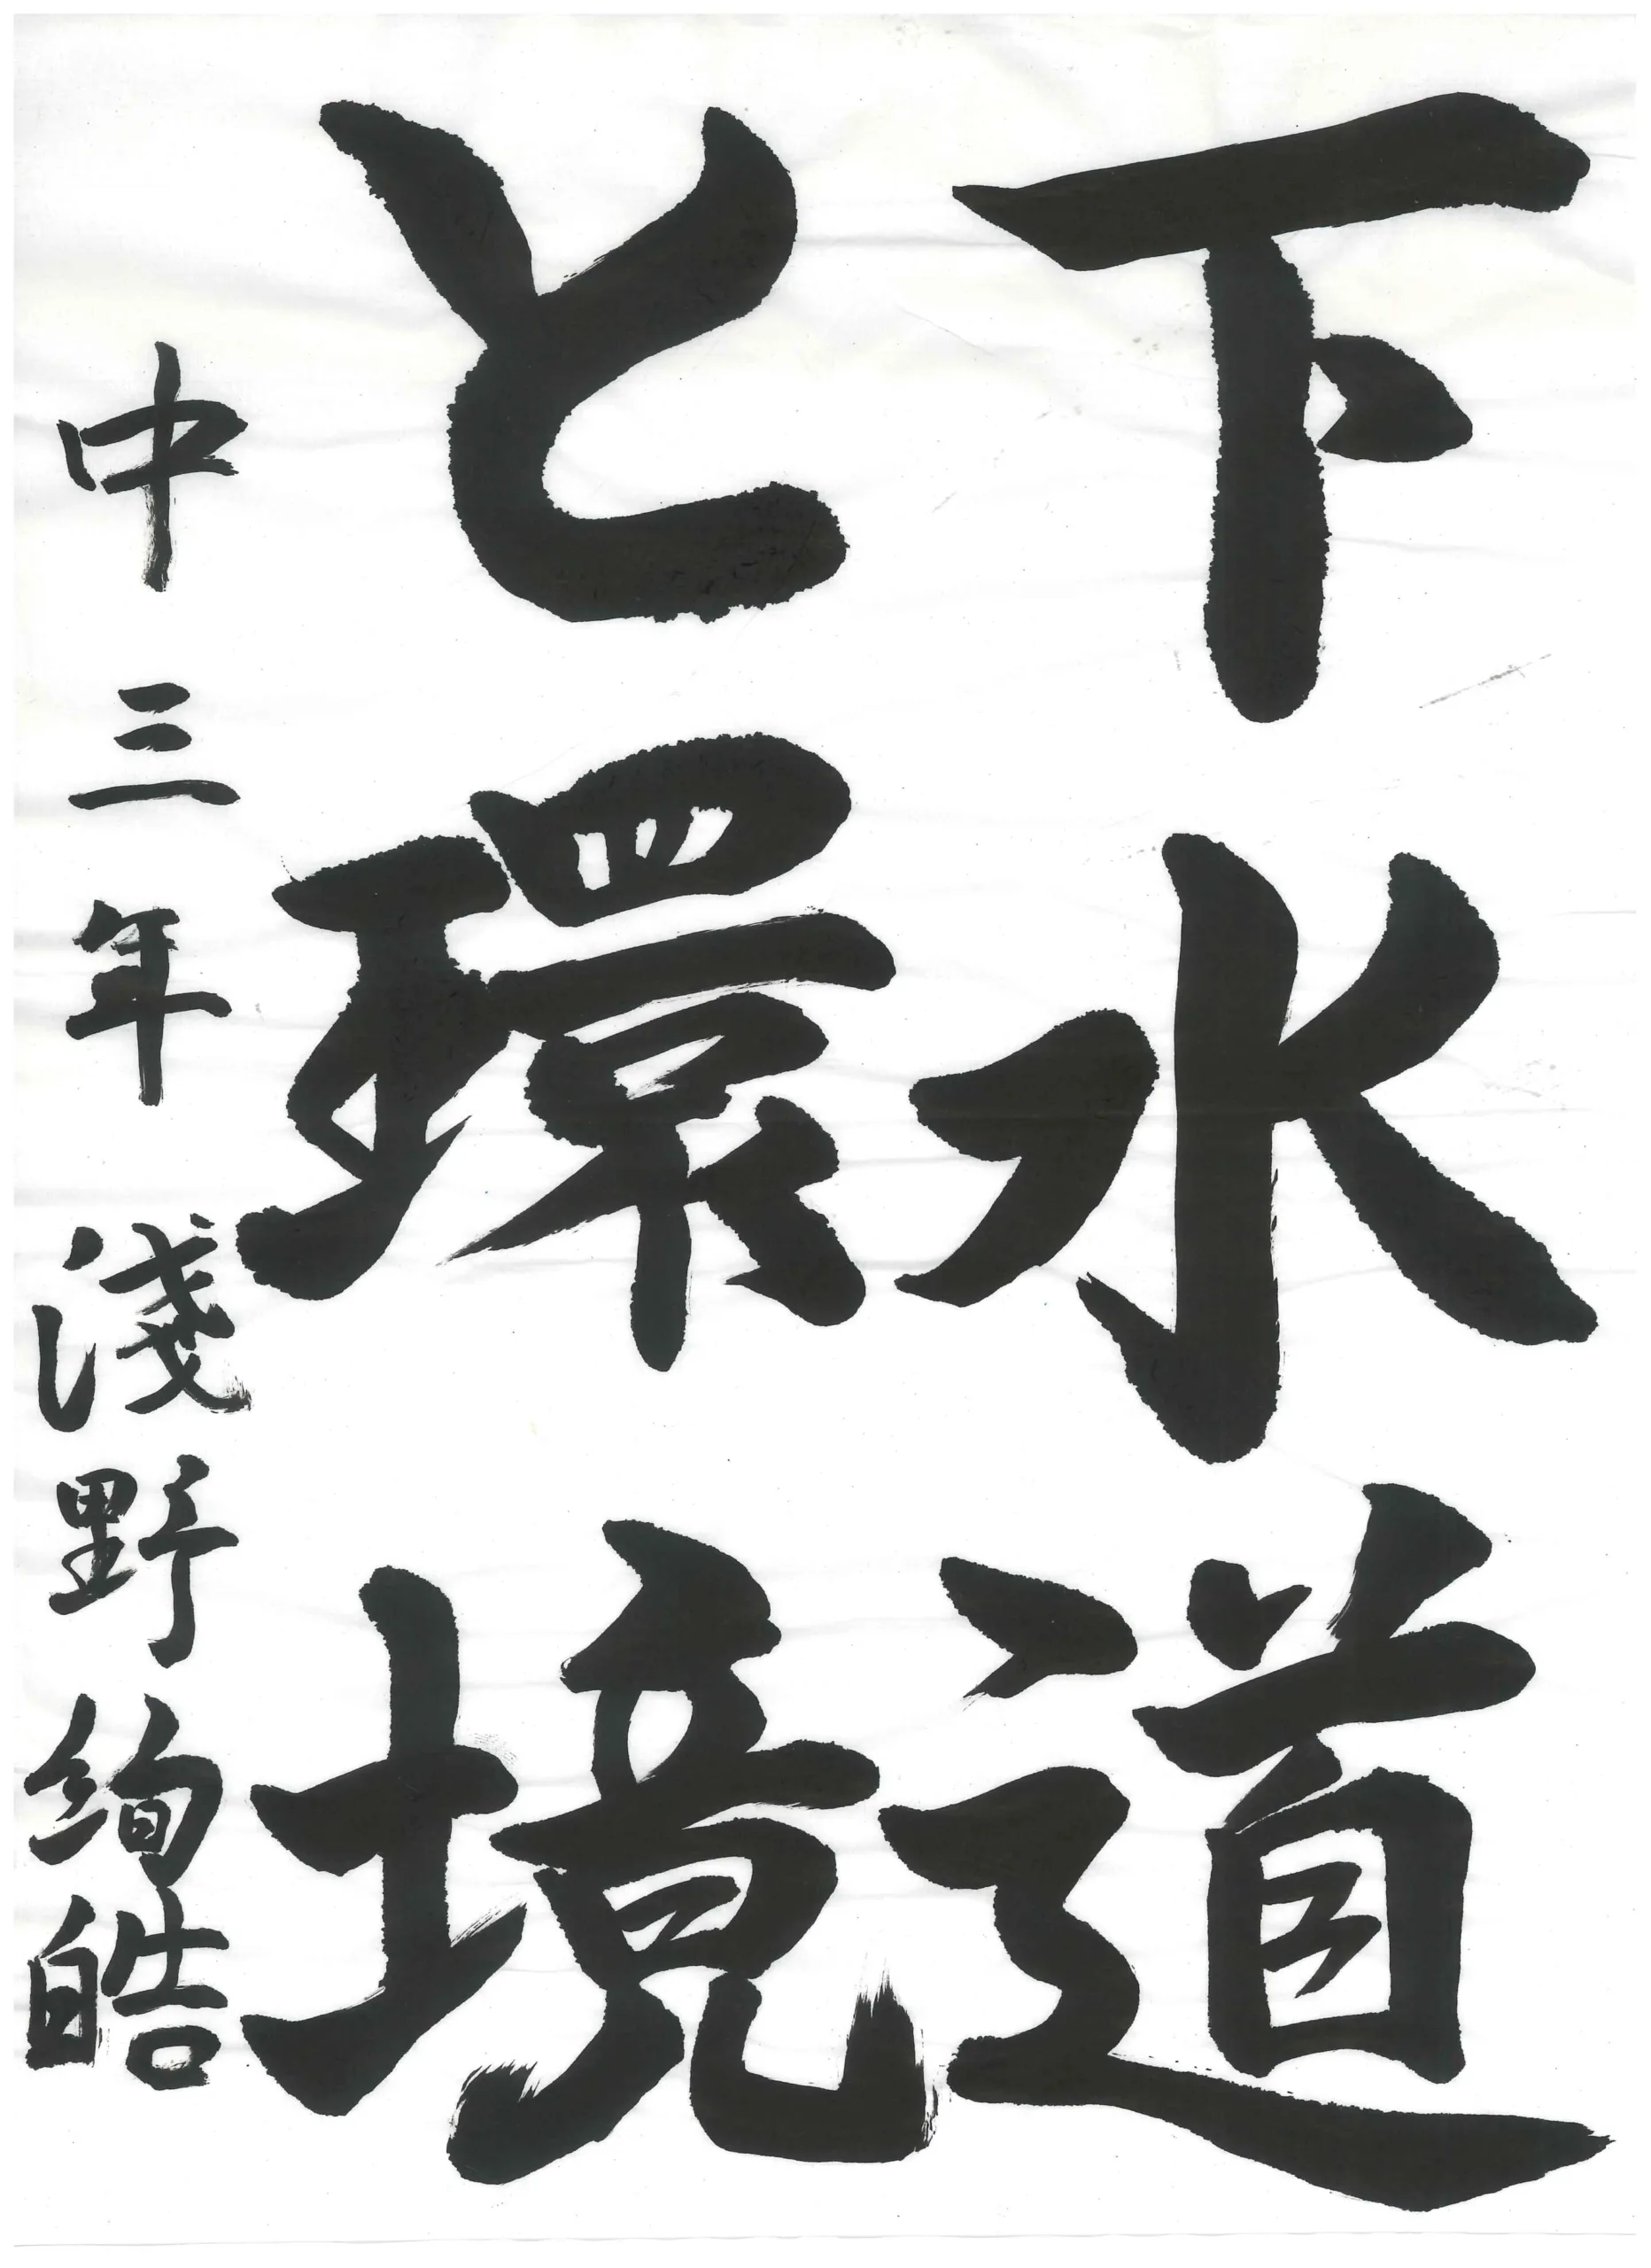 下水道
と環境
中三年 淺野絢皓